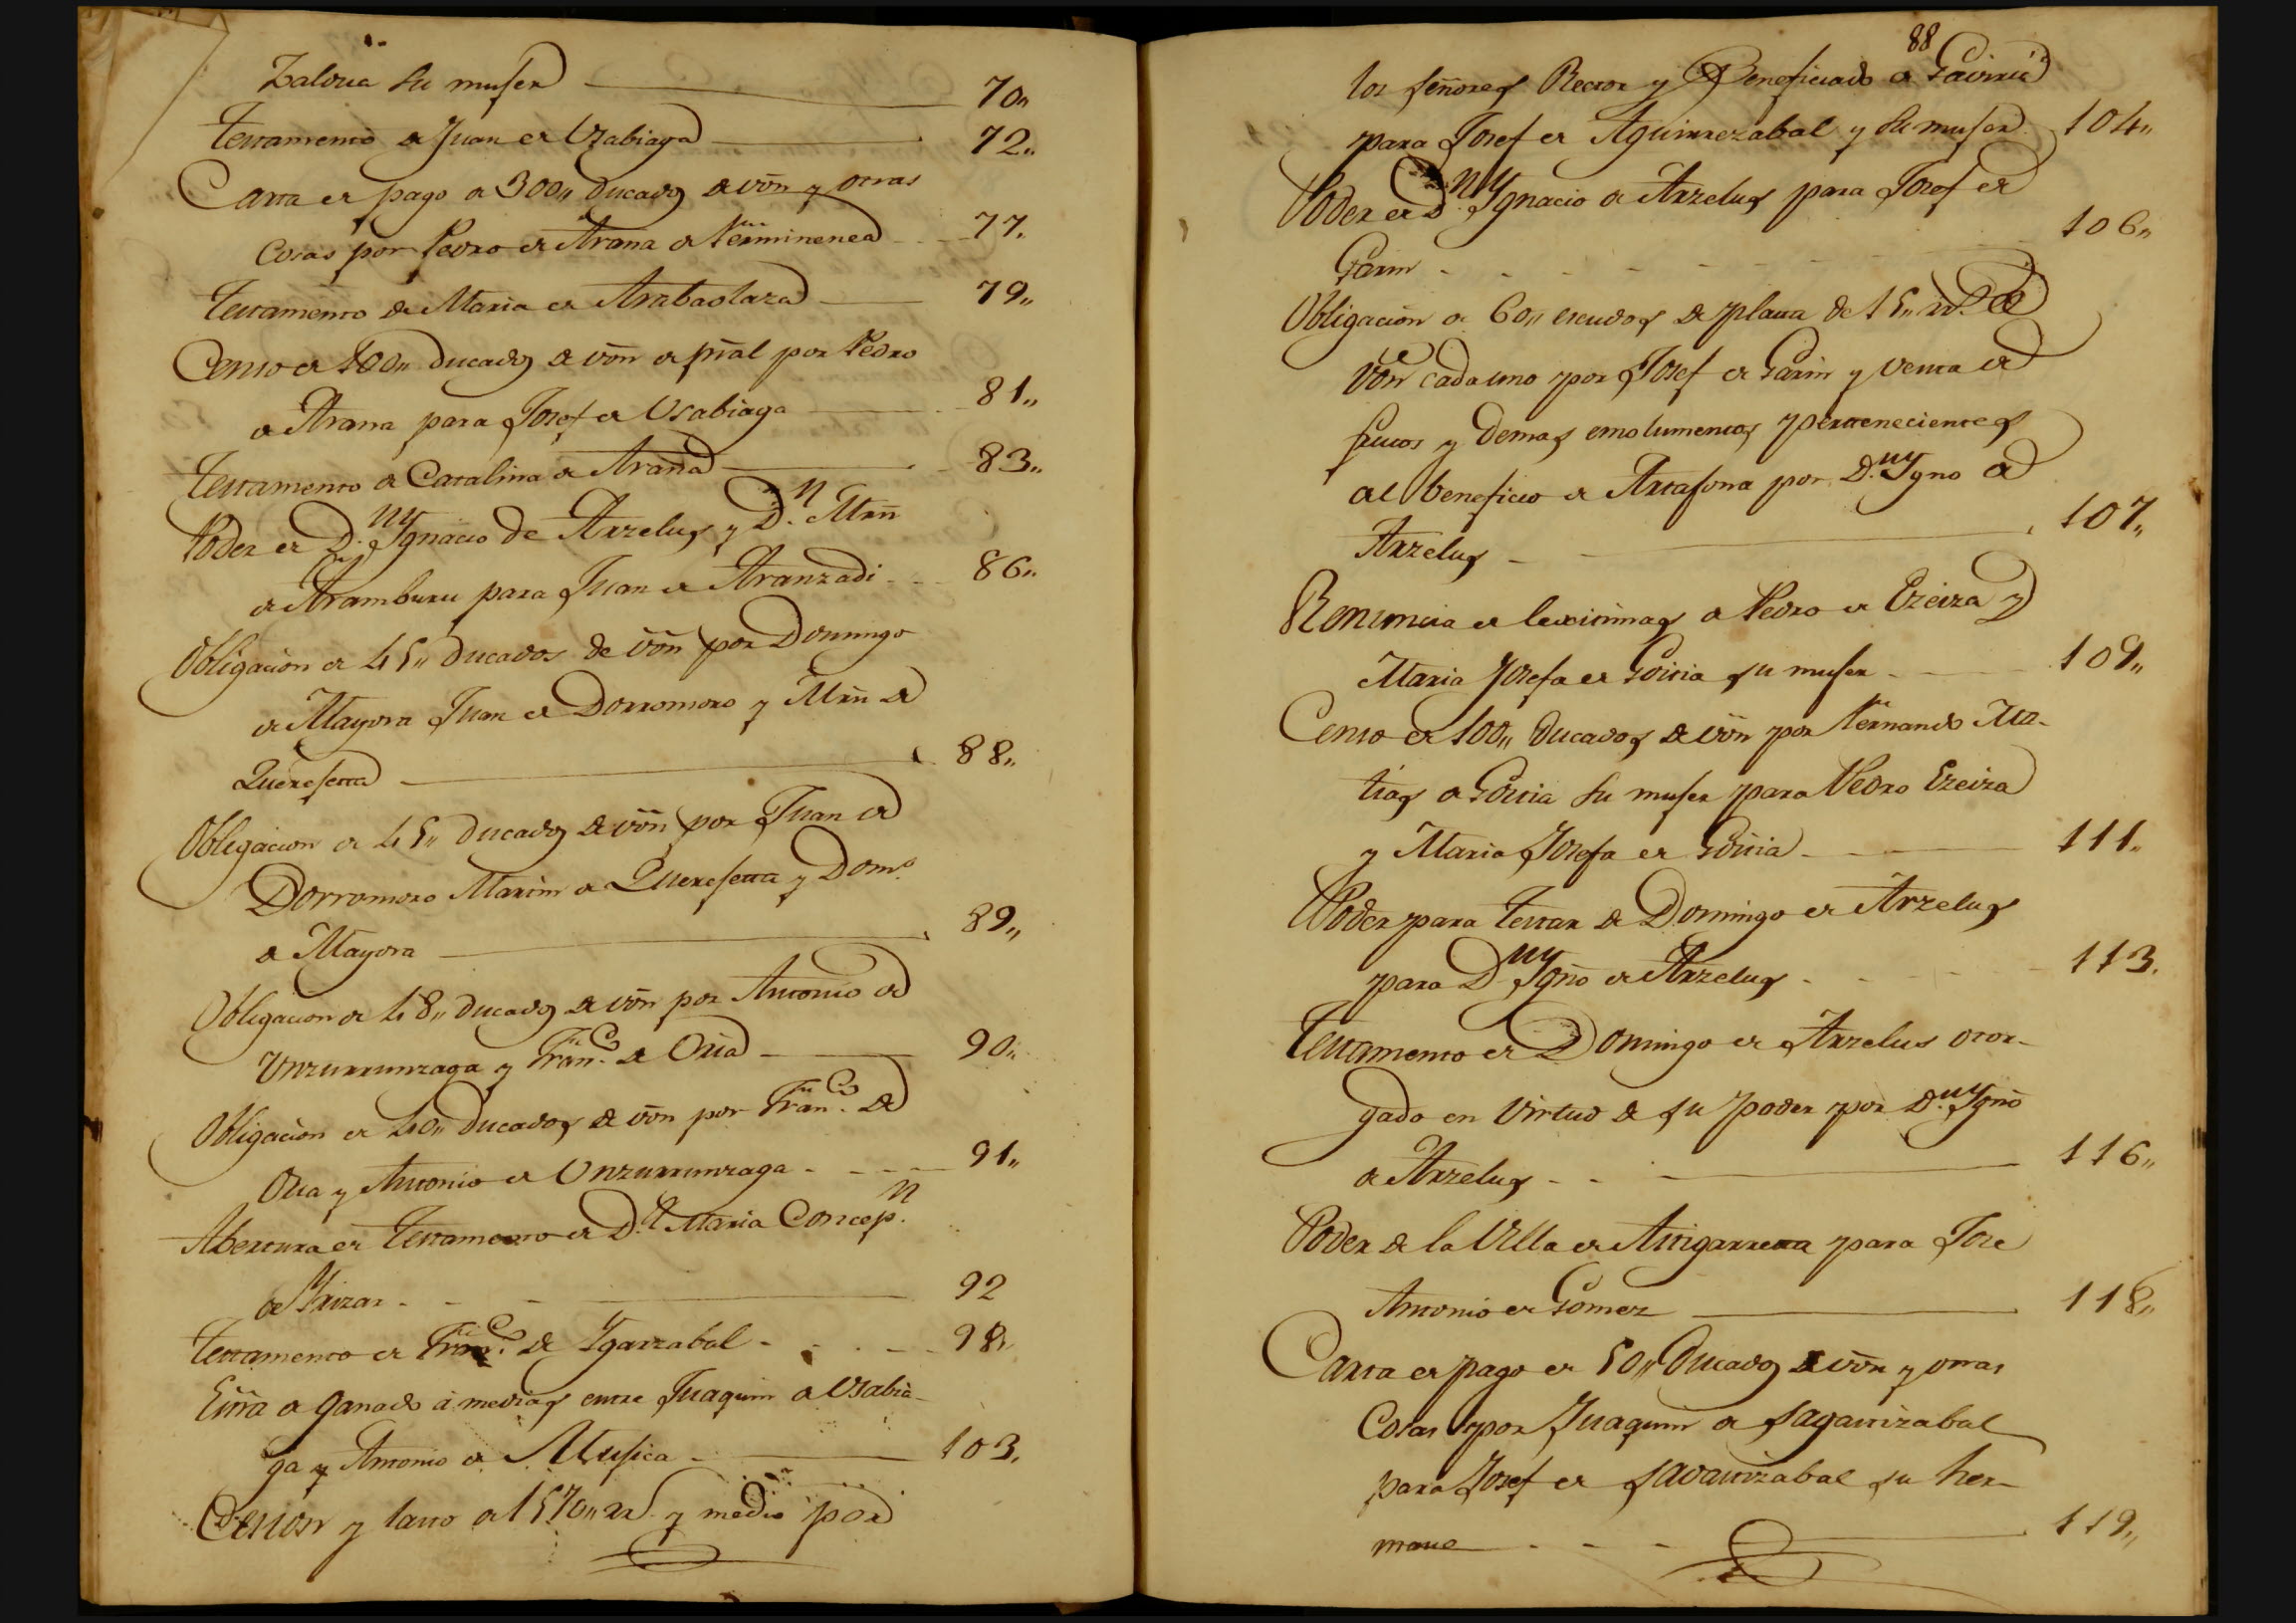 Zaldua su muger 70„
Testamento de Juan de Vzabiaga 72„
Carta de pago de 300„ ducados de von y otras
cosas por Pedro de Arana de Herminenea 77„
Testamento de Maria de Arabaolaza 79„
Censo de 100„ ducados de von de pñal por Pedro
de Arana para Josef de Vsabiaga 81„
Testamento de Catalina de Arana 83„
Poder de D.n Ygnacio de Arzelus y D.n Mrn
de Aramburu para Juan de Aranzadi 86„
Obligacion de 45„ ducados de von por Domingo
de Mayora Juan de Dorromoro y Mrn de
Querejeta 88„
Obligacion de 45„ ducados de von por Juan de
Dorromoro Martin de Querejeta y Dom.o
de Mayora 89„
Obligacion de 48„ ducados de von por Antonio de
Unzurrunzaga y Fran.co de Oria 90„
Obligacion de 40„ ducados de von por Fran.co de
Oria y Antonio de Unzurrunzaga 91„
Abertura de Testamento de D.a Maria Concep.n
de Yrizar 92
Testamento de Fran.co de Ygarzabal 98„
Esrra de ganado á medias entre Juaquin de Vsabia-
ga y Antonio de Mugica 103„
Cesion y lasto de 1570„ rr.s y medio por
88
los señores Rector y Beneficiado de Gaviria
para Josef de Aguirrezabal y su muger 104„
Poder de D.n Ygnacio de Arzelus para Josef de
Garin 106„
Obligacion de 60„ escudos de plata de 15„ rr.s de
von cada uno por Josef de Garin y venta de
frutos y demas emolumentos pertenecientes
al beneficio de Artajona por D.n Ygno de
Arzelus 107„
Renuncia de lexitimas de Pedro de Ezeiza y
Maria Josefa de Goitia su muger 109„
Censo de 100„ ducados de von por Hernando Ma-
tias de Goitia su muger para Pedro Ezeiza
y Maria Josefa de Goitia 111„
Poder para testar de Domingo de Arzelus
para D.n Ygno de Arzelus 113„
Testamento de Domingo de Arzelus otor-
gado en virtud de su poder por D.n Ygno
de Arzelus 116„
Poder de la Villa de Astigarreta para Jose
Antonio de Gomez 118„
Carta de pago de 50„ ducados de von y otras
cosas por Juaquin de Sagastizabal
para Josef de Sagastizabal su her-
mano 119„